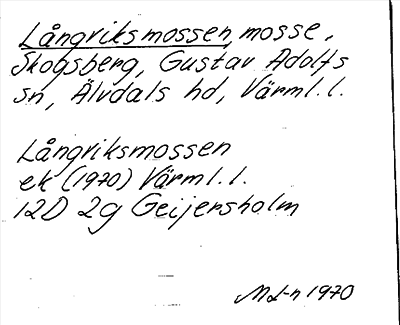 Långriksmossen, mosse,
Skogsberg, Gustav Adolfs
sn, Älvdals hd, Värml. l.
Långriksmossen
ek (1970) Värml. l.
12D 2g Geijersholm
MLn 1970